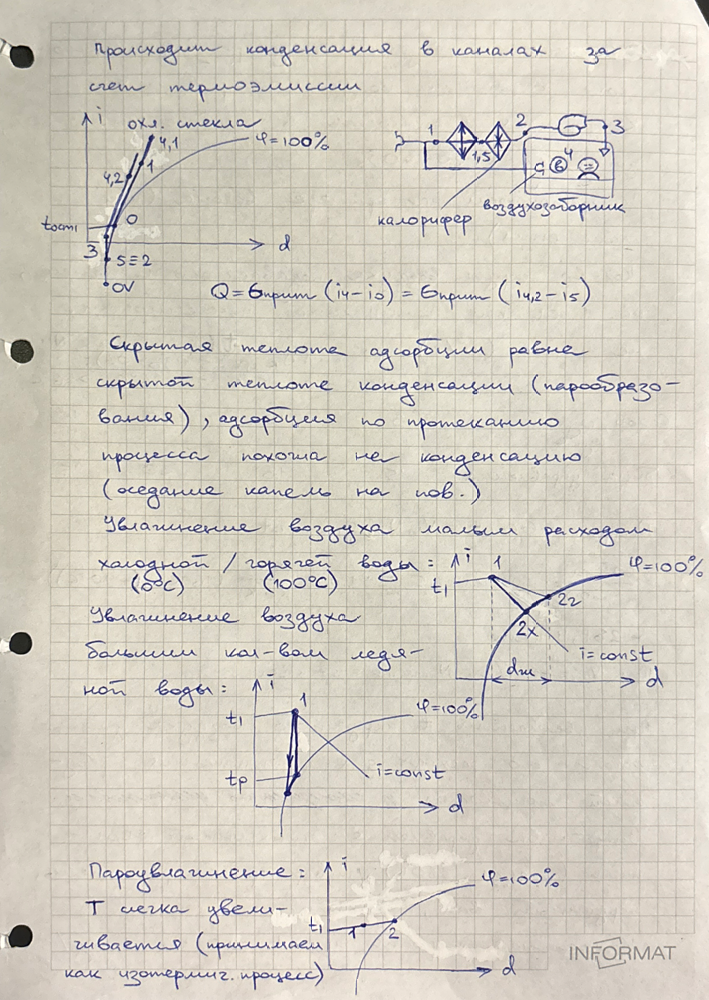 Происходит конденсация в каналах за
счет термоэмиссии
i
охл. стекла
4,1
φ=100%
1
4,2
0
tост1
d
3
5≡2
0V
1
1,5
2
3
4
калорифер
воздухозаборник
Q = Gприт (i4-i0) = Gприт (i4,2-i5)
Скрытая теплота адсорбции равна
скрытой теплоте конденсации (парообразо-
вания), адсорбция по протеканию
процесса похожа на конденсацию
(оседание капель на пов.)
Увлажнение воздуха малым расходом
холодной / горячей воды:
(0°C) (100°C)
i
t1
1
φ=100%
2г
2х
i=const
dm
d
Увлажнение воздуха
большим кол-вом ледя-
ной воды:
i
t1
1
φ=100%
tp
i=const
d
Пароувлажнение:
T слегка увели-
чивается (принимаем
как изотермич. процесс)
i
φ=100%
t1
1
2
d
INFORMAT